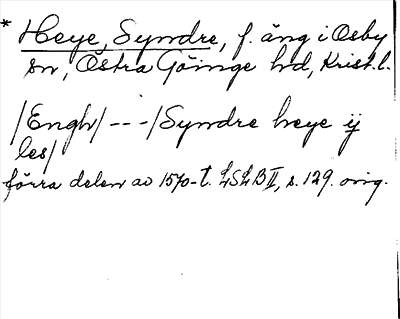 * Heye, Syndre, f. äng i Osby
sn, Östra Göinge hd, Krist. l.
/Engh/ - - - /Syndre heye ij
les/
förra delen av 1570-t. LSLB II, s. 129. orig.